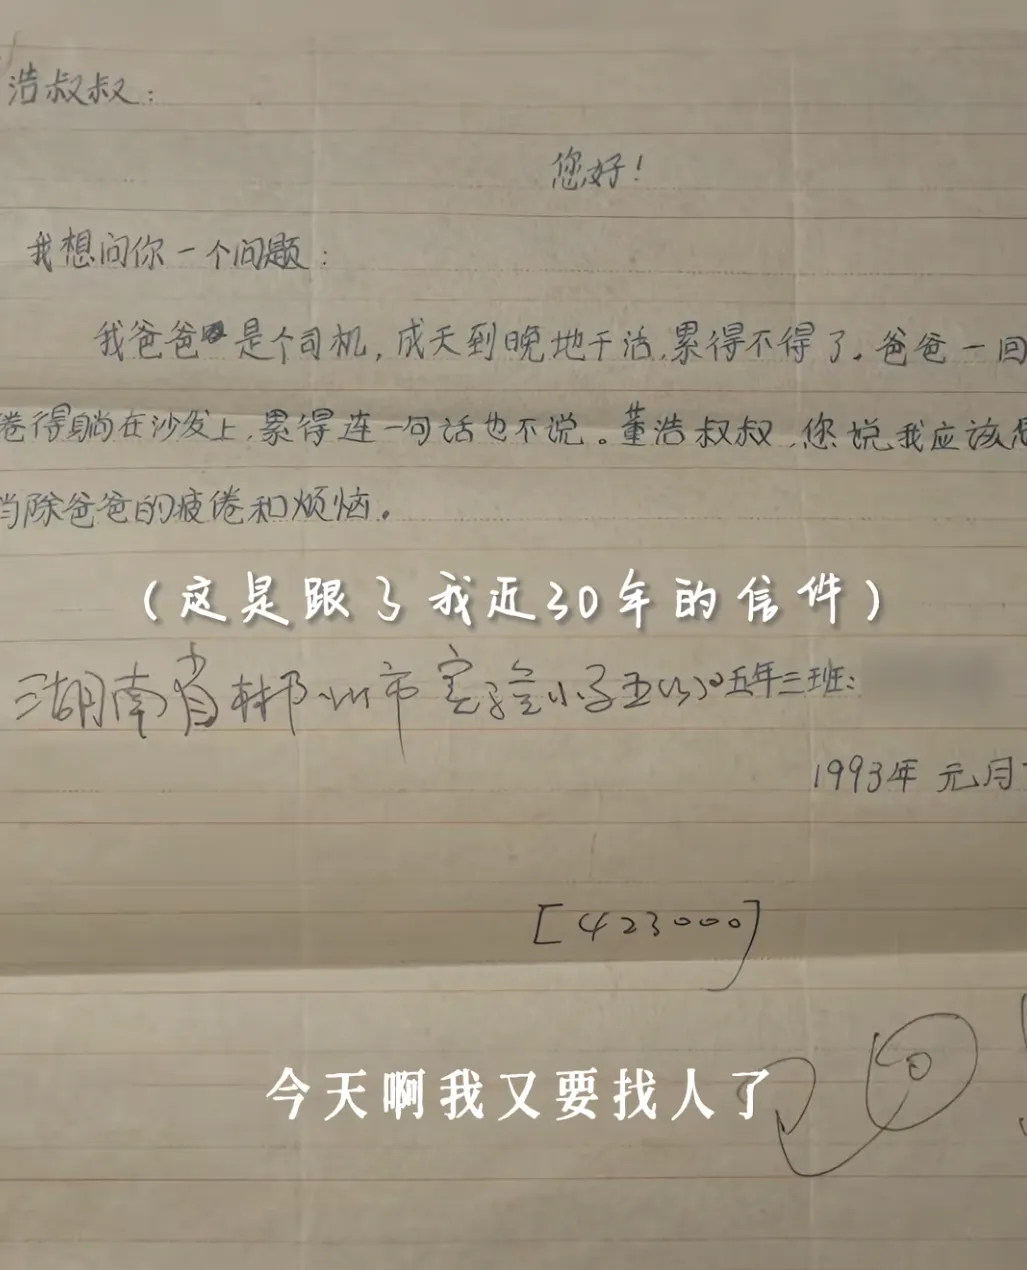 浩叔叔:
您好!
我想问你一个问题:
我爸爸是个司机,成天到晚地干活,累得不得了。爸爸一回
倦得躺在沙发上,累得连一句话也不说。董浩叔叔,您说我应该怎
除爸爸的疲倦和烦恼。
(这是跟了我近30年的信件)
湖南省郴州市实验小学五(3)五年三班:
1993年元月
[423000]
今天啊我又要找人了